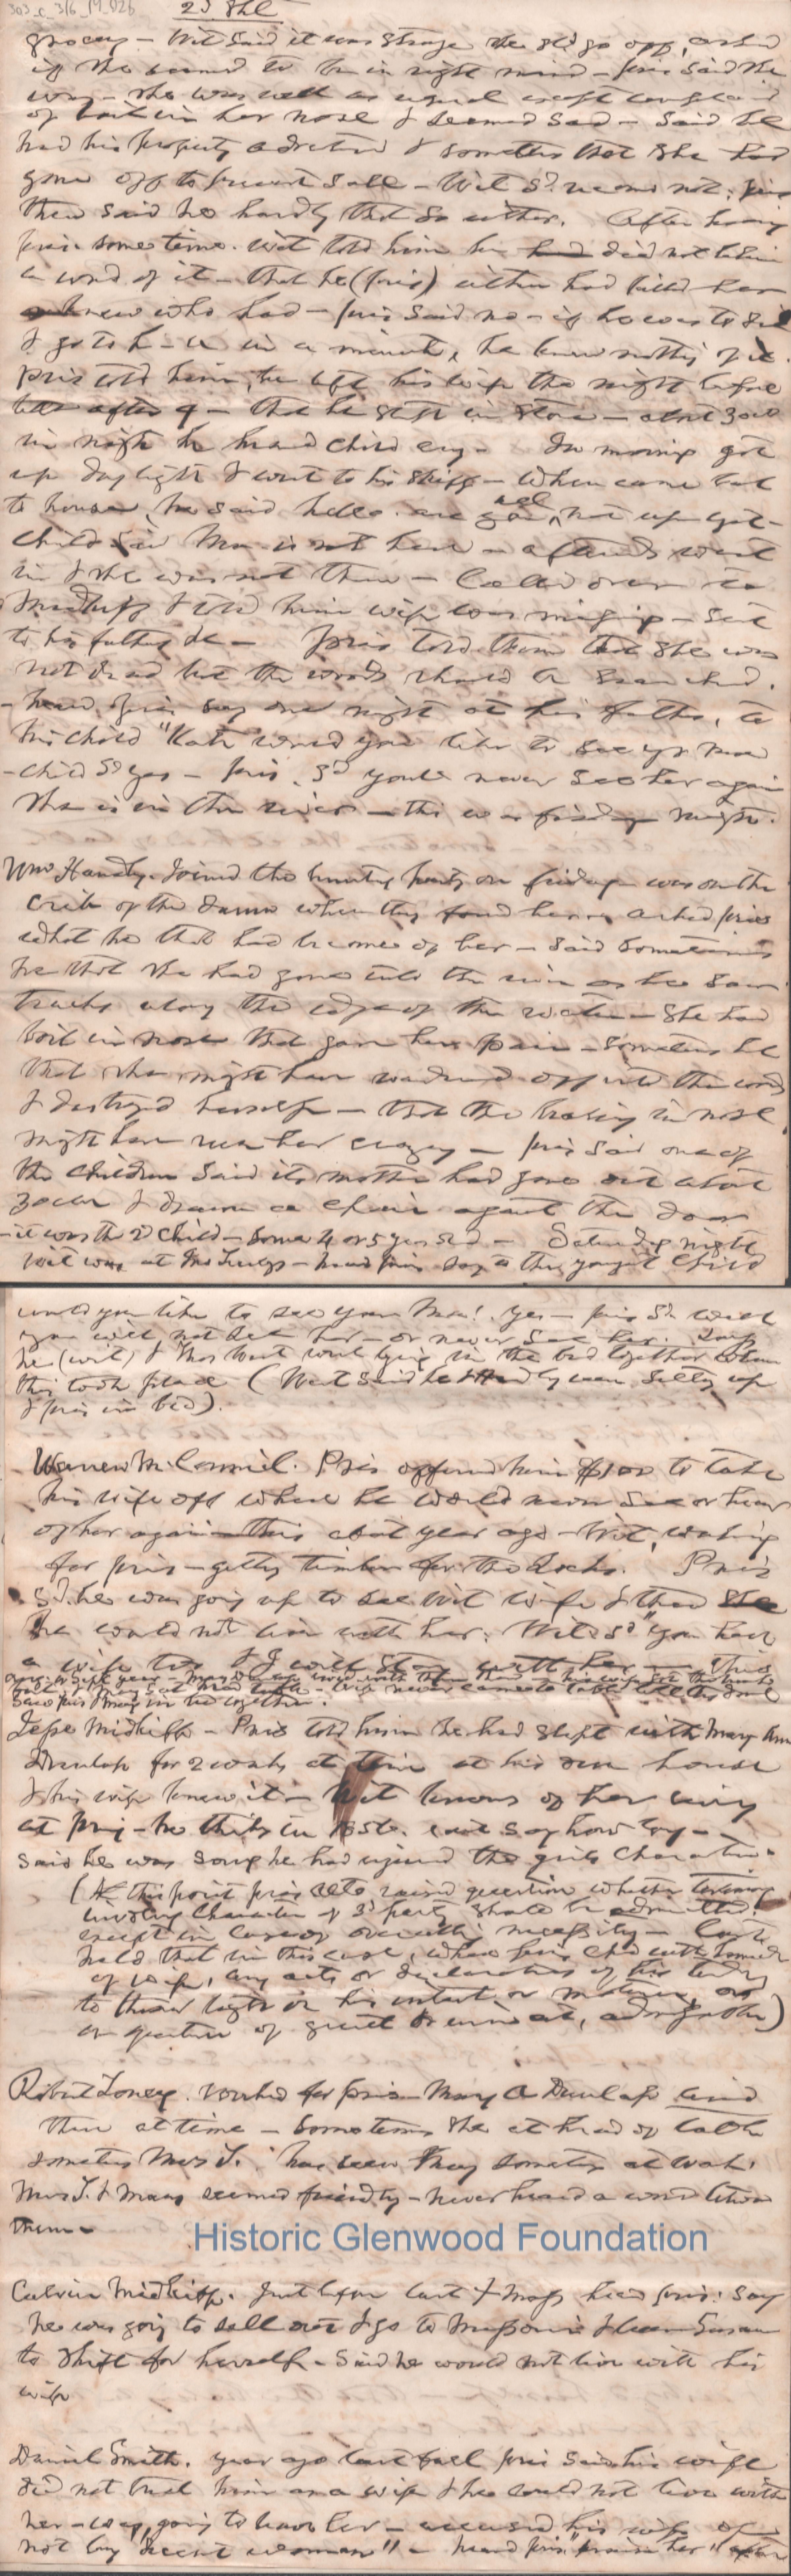 303_c_3/6_M_026
2d Sht
grocery – Wit said it was strange she shd go off, asked
if she seemed to be in right mind – pris said she
was – she was well as usual except complained
of boil in her nose & seemed sad – Said he
had his property advertised & sometimes thot she had
gone off to prevent sale – Wit sd. reckons not, pris
then said he hardly thot so either. After having
pris some time. Wit told him he had did not believe
a word of it – that he (pris) either had killed her
or knew who had – pris said no – if he was to die
& go to h–ll in a minute, he knew nothing of it.
pris told him, he left his wife the night before
after 9 – that he slept in store – about 3 oclk
in night he heard child cry – In morning got
up daylight & went to his skiff – When came back
to house, he said hello are you all not up yet –
Child said Ma is not here – afterwards went
in & she was not there – Called over to
Midkiff & told him wife was missing – sent
to his father &c – Pris told them that she was
not dead but the woods should be searched.
– heard pris say one night at his fathers, to
his child "Kate would you like to see yr Ma
– child sd yes – pris. sd you'll never see her again
she is in the river – this was friday night.
Wm Handly. Joined the hunting party on friday – was on the
crib of the dam when they found her – asked pris
what he thot had become of her – Said sometimes
he thot she had gone into the river as he saw
tracks along the edge of the water – She had
boil in nose that gave her pain – Sometimes he
thot she might have wandered off into the woods
& destroyed herself – that the boil in nose
might have run her crazy – pris said one of
the children said its mother had gone out about
2 oclk & drawn a chair against the door
– it was the 2d child – some 4 or 5 years old – Saturday night
wit was at – heard pris say to the youngest child
would you like to see your Ma! Yes – pris sd well
you will not see her – or never see her. Says
he (wit) & were lying in the bed together when
this took place (West said he & Handly were sitting up
& pris in bed).
Warren McConnel. Pris offered him $100 to take
his wife off where he would never see or hear
of her again – this about year ago – Wit, working
for pris – getting timber for the Locks. Pris
sd. he was going up to see Wit wife & that she
he would not live with her. Wit sd "you have
a wife too & I will stay with her – This
saw pris & Mary in bed together.
Jesse Midkiff – Pris told him he had slept with Mary Ann
Dunlap for 2 weeks at time at his own house
& his wife knew it – Wit knows of her being
at pris – he thinks in 1856. cant say how long –
said he was sorry he had injured the girls character.
(At this point pris attos raised question whether testimony
involving character of 3d party should be admitted,
except in case of overruling necessity – Court
held that in this case, where pris chd with murder
of wife, any acts or declarations of his tending
to throw light on his intent or motives, or
on question of guilt or innocence, admissible)
Robert Toney. Worked for pris – Mary A Dunlap lived
there at time – Sometimes she at head of table
sometimes Mrs T. has seen Mary sometimes at work.
Mrs T. & Mary seemed friendly – never heard a word between
them –
Historic Glenwood Foundation
Calvin Midkiff. Just before last Xmas heard pris. say
he was going to sell out & go to Missouri & leave Susan
to shift for herself – Said he would not live with his
wife
Daniel Smith. year ago last fall pris said his wife
did not treat him as a wife & he could not live with
her – was going to leave her – accused his wife of
not being "decent woman" – heard pris "praise her" after